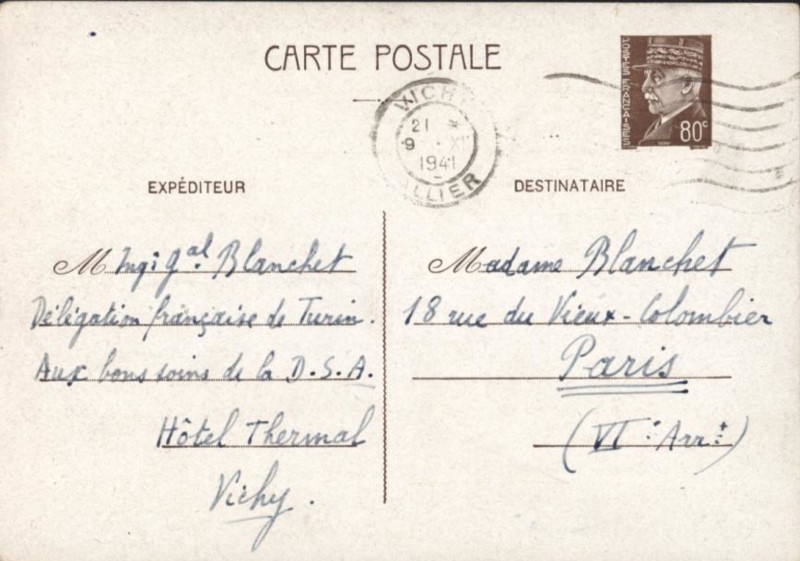 CARTE POSTALE
POSTES FRANÇAISES
80c
VICHY
21 *
9 XII
1941
ALLIER
EXPÉDITEUR
M Ingr Gal Blanchet
Délégation française de Turin.
Aux bons soins de la D.S.A.
Hôtel Thermal
Vichy.
DESTINATAIRE
Madame Blanchet
18 rue du Vieux-Colombier
Paris
(VIe Arrt)